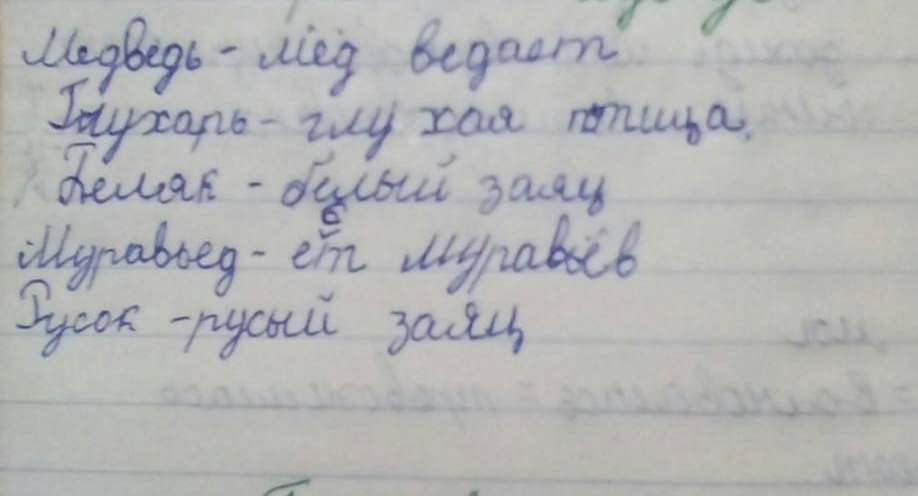 Медведь - мёд ведает
Глухарь - глухая птица.
Беляк - белый заяц
Муравьед - ест муравьёв
Русок - русый заяц